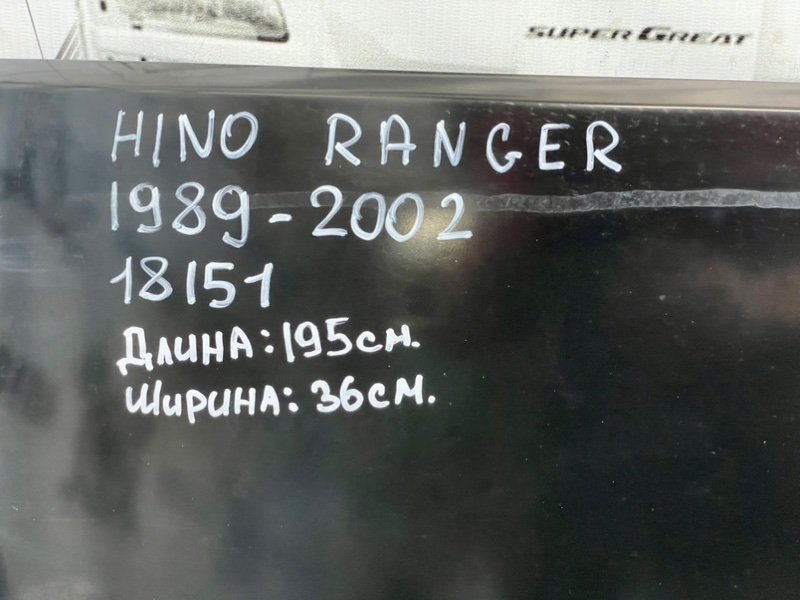 SUPER GREAT
HINO RANGER
1989-2002
18151
ДЛИНА: 195см.
ШИРИНА: 36см.